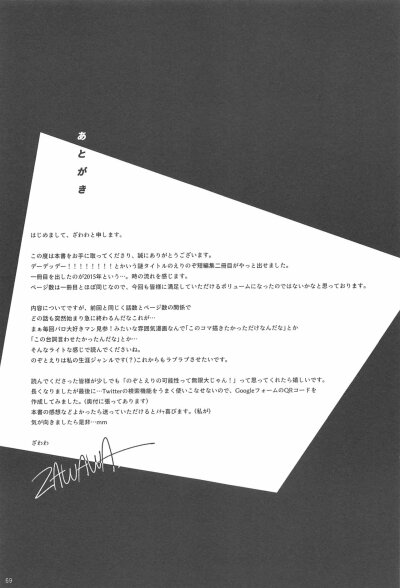 あとがき
はじめまして、ざわわと申します。
この度は本書をお手に取ってくださり、誠にありがとうございます。
デーデッデー！！！！！！！！とかいう謎タイトルのえりのぞ短編集二冊目がやっと出せました。
一冊目を出したのが2015年という…。時の流れを感じます。
ページ数は一冊目とほぼ同じなので、今回も皆様に満足していただけるボリュームになったのではないかなと思っております。
内容についてですが、前回と同じく話数とページ数の関係で
どの話も突然始まり急に終わるんだなこれが…
まぁ毎回パロ大好きマン見参！みたいな雰囲気漫画なんで「このコマ描きたかっただけなんだな」とか
「この台詞言わせたかったんだな」とか…
そんなライトな感じで読んでくださいね。
のぞとえりは私の生涯ジャンルです（？）これからもラブラブさせたいです。
読んでくださった皆様が少しでも「のぞえりの可能性って無限大じゃん！」って思ってくれたら嬉しいです。
長くなりましたが最後に…Twitterの検索機能をうまく使いこなせないので、GoogleフォームのQRコードを
作成してみました。（奥付に張ってあります）
本書の感想などよかったら送っていただけるとﾒﾁｬ喜びます。（私が）
気が向きましたら是非…mm
ざわわ
ZAWAWA
69